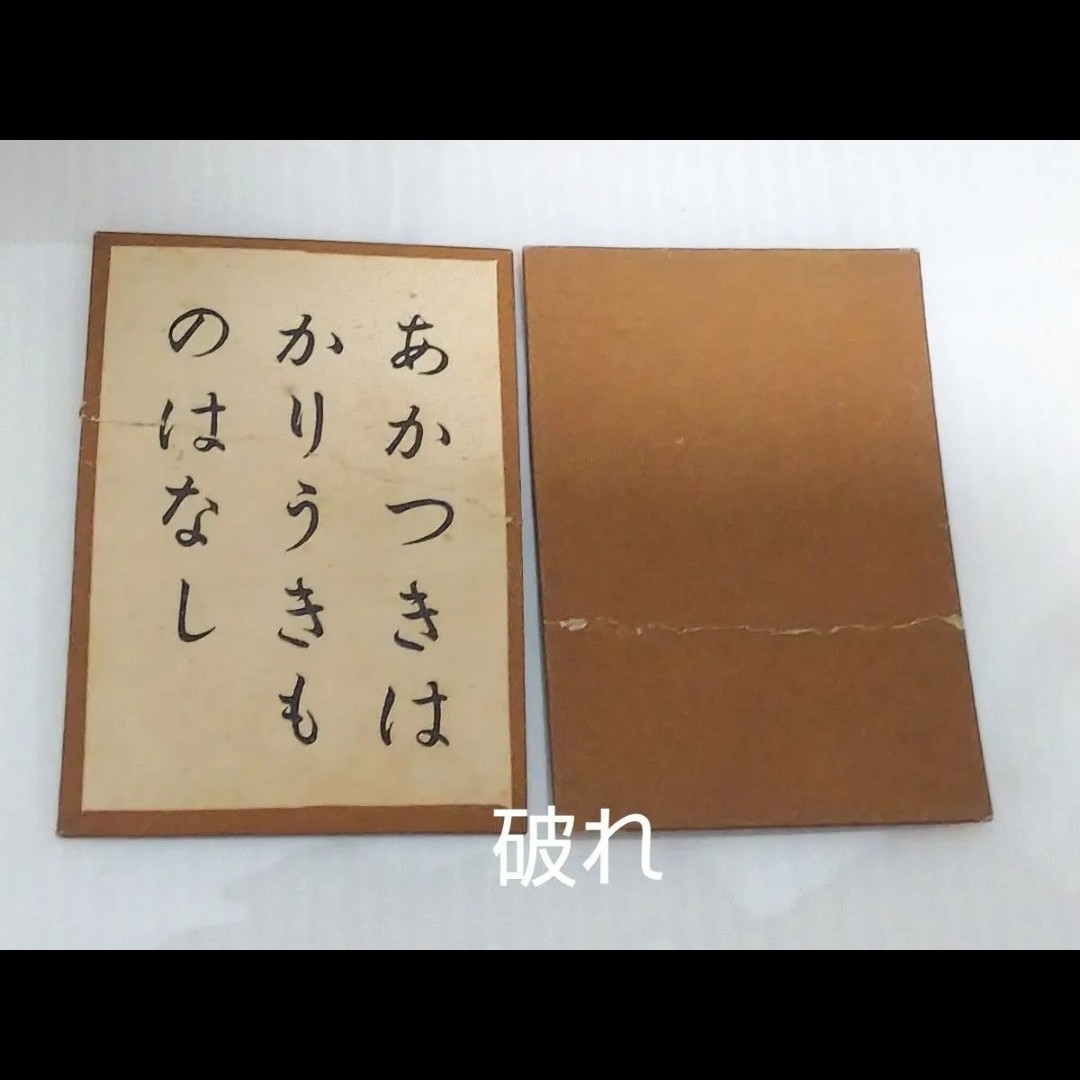 あかつきは
かりうきも
のはなし
破れ